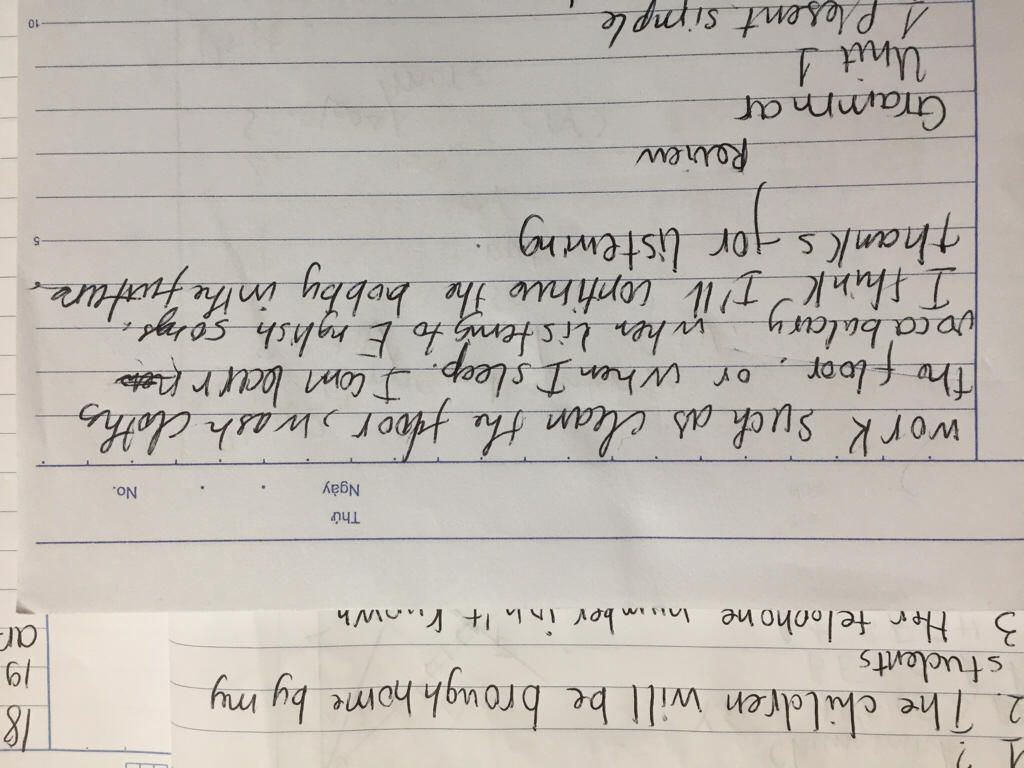 2. The children will be brough home by my
students
3 Her telophone number isn't known
18
19
Thứ
Ngày
No.
work such as clean the floor, wash cloths
the floor, or when I sleep. I can learn
vocabulary when listening to English songs.
I think I'll continue the hobby in the furture.
thanks for listening.
5
Review
Grammar
Unit 1
1 Present simple
10